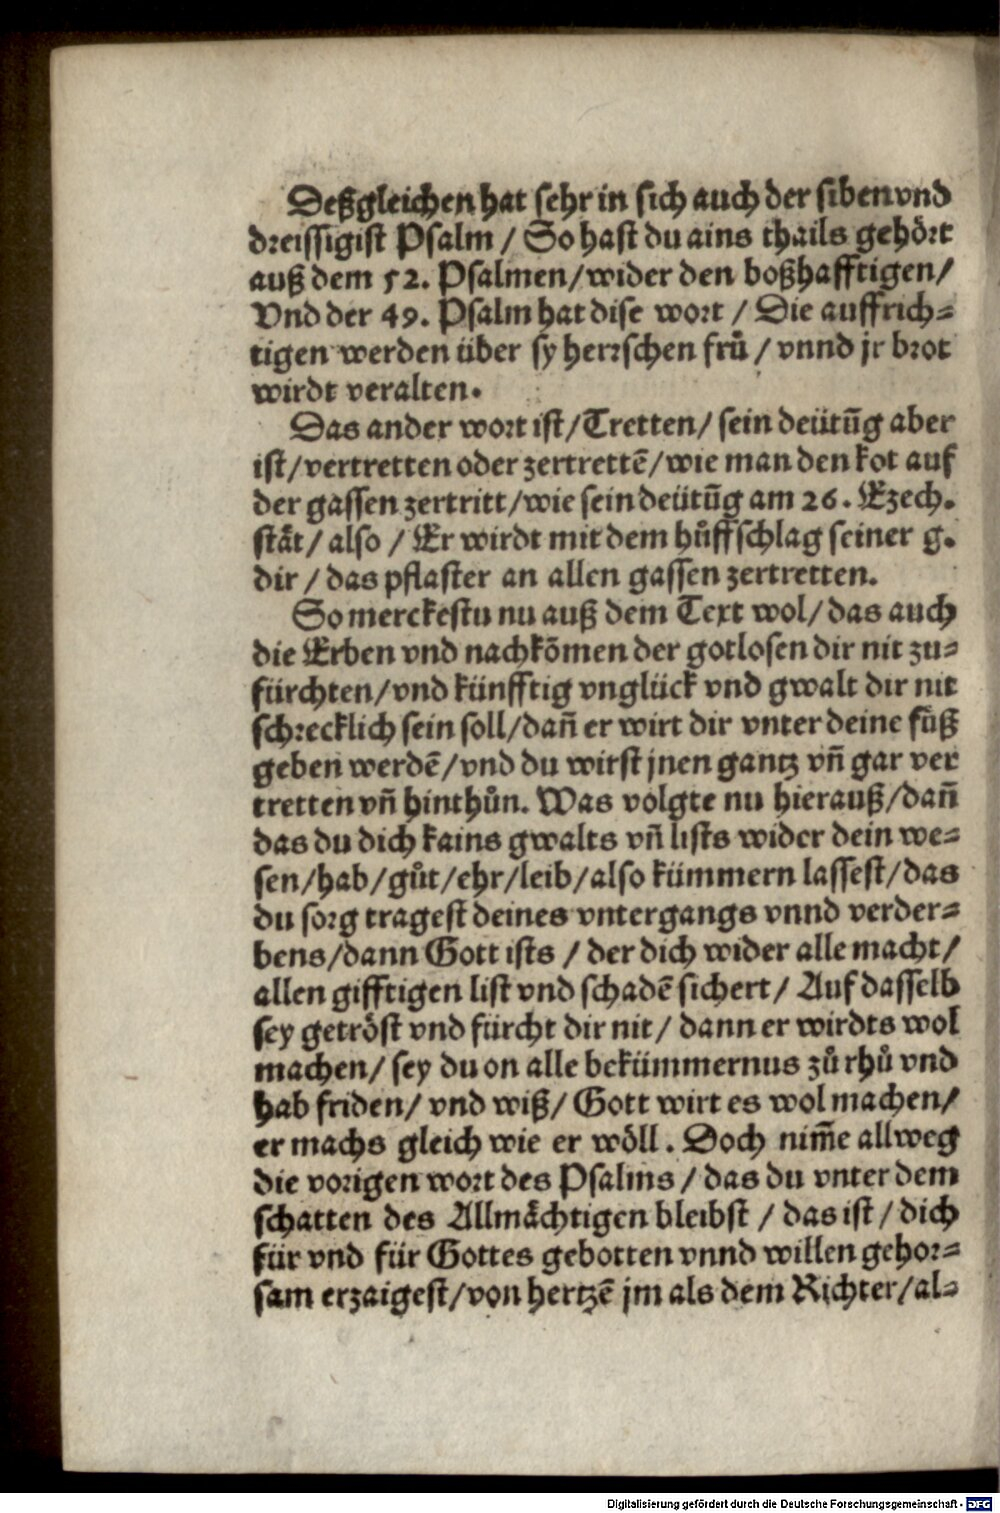 Deßgleichen hat sehr in sich auch der siben vnd
dreissigist Psalm / So hast du ains thails gehört
auß dem 52. Psalmen/wider den boßhafftigen/
Vnd der 49. Psalm hat dise wort / Die auffrich-
tigen werden über sy herrschen frů / vnnd jr brot
wirdt veralten.
Das ander wort ist/Tretten/ sein deütūg aber
ist/vertretten oder zertrettē/wie man den kot auf
der gassen zertritt/wie sein deütūg am 26. Ezech.
stāt/ also / Er wirdt mit dem hůffschlag seiner g.
dir / das pflaster an allen gassen zertretten.
So merckestu nu auß dem Text wol/das auch
die Erben vnd nachkōmen der gotlosen dir nit zu-
fürchten/vnd künfftig vnglück vnd gwalt dir nit
schrecklich sein soll/dañ er wirt dir vnter deine füß
geben werdē/vnd du wirst jnen gantz vñ gar ver
tretten vñ hinthůn. Was volgte nu hierauß/dañ
das du dich kains gwalts vñ lists wider dein we-
sen/hab/gůt/ehr/leib/also kümmern lassest/das
du sorg tragest deines vntergangs vnnd verder-
bens/dann Gott ists / der dich wider alle macht/
allen gifftigen list vnd schadē sichert/ Auf dasselb
sey getröst vnd fürcht dir nit/ dann er wirdts wol
machen/ sey du on alle bekümmernus zů rhů vnd
hab friden/ vnd wiß/ Gott wirt es wol machen/
er machs gleich wie er wöll. Doch nim̄e allweg
die vorigen wort des Psalms / das du vnter dem
schatten des Allmächtigen bleibst / das ist / dich
für vnd für Gottes gebotten vnnd willen gehor-
sam erzaigest/von hertzē jm als dem Richter/al-
Digitalisierung gefördert durch die Deutsche Forschungsgemeinschaft - DFG